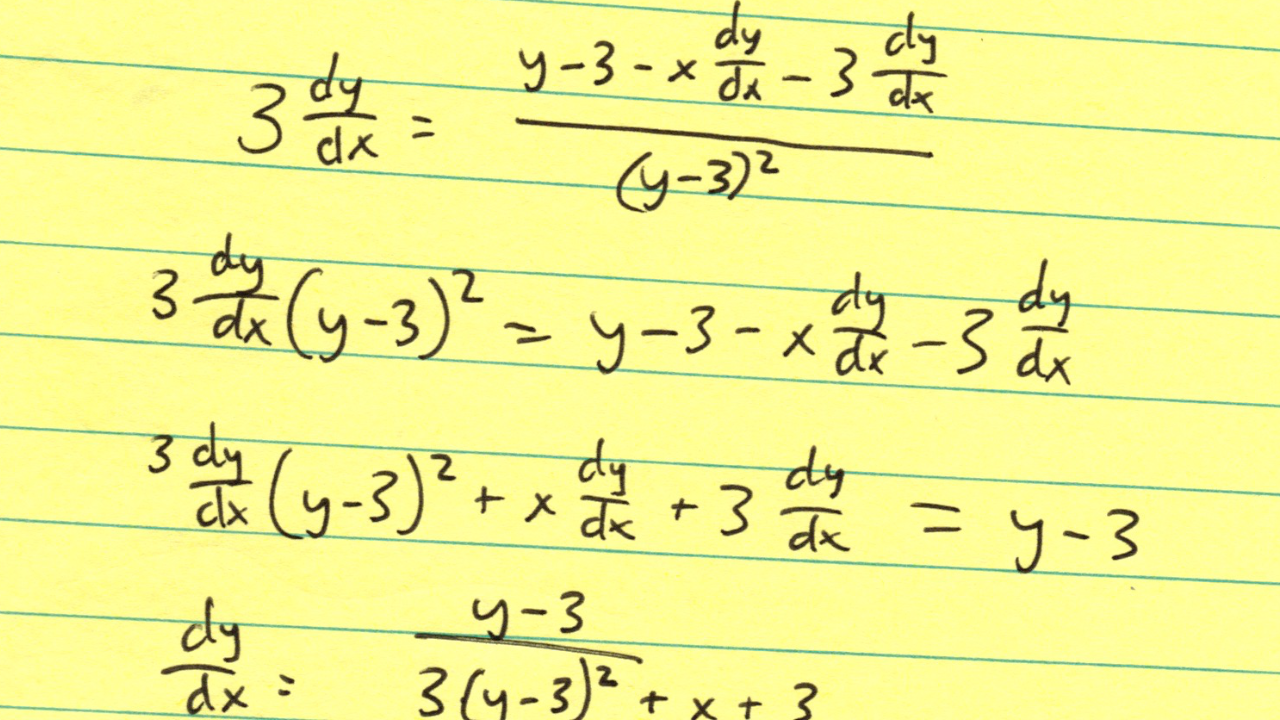 3 dy/dx = (y-3-x dy/dx - 3 dy/dx)/(y-3)²
3 dy/dx (y-3)² = y-3-x dy/dx - 3 dy/dx
3 dy/dx (y-3)² + x dy/dx + 3 dy/dx = y-3
dy/dx = (y-3)/(3(y-3)² + x + 3)